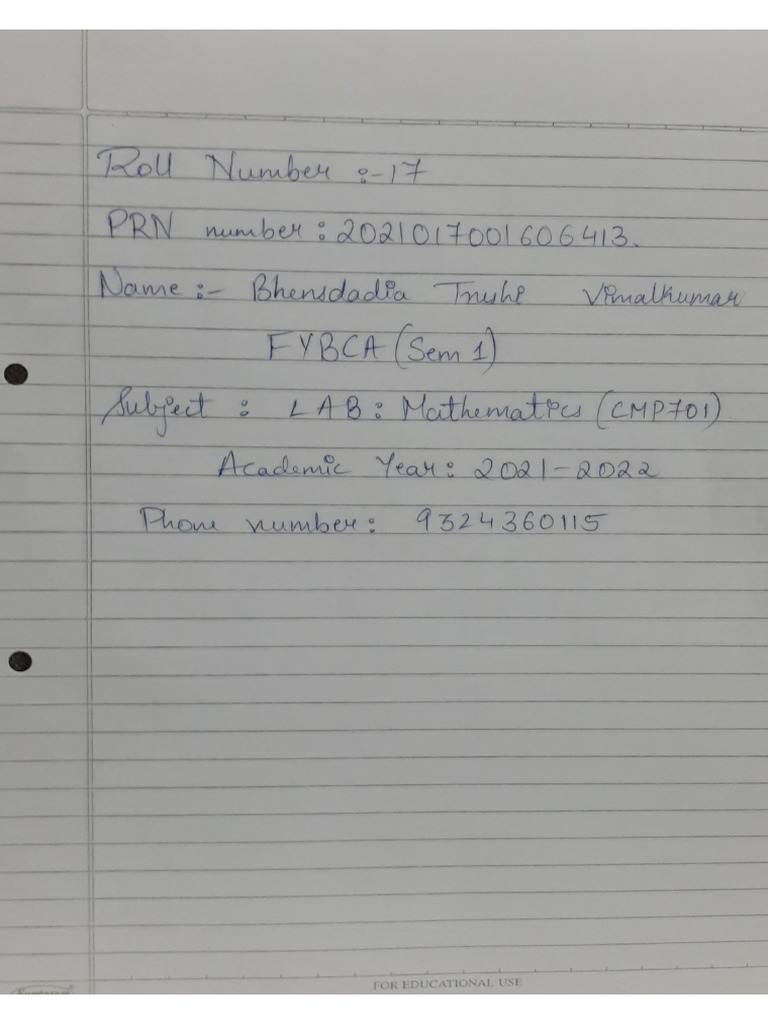 Roll Number :- 17
PRN number : 2021017001606413.
Name :- Bhensdadia Trushi Vimalkumar
FYBCA (Sem 1)
Subject : LAB : Mathematics (CMP701)
Academic Year : 2021-2022
Phone number : 9324360115
FOR EDUCATIONAL USE